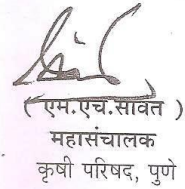 ( एम.एच.सावंत )
महासंचालक
कृषी परिषद, पुणे